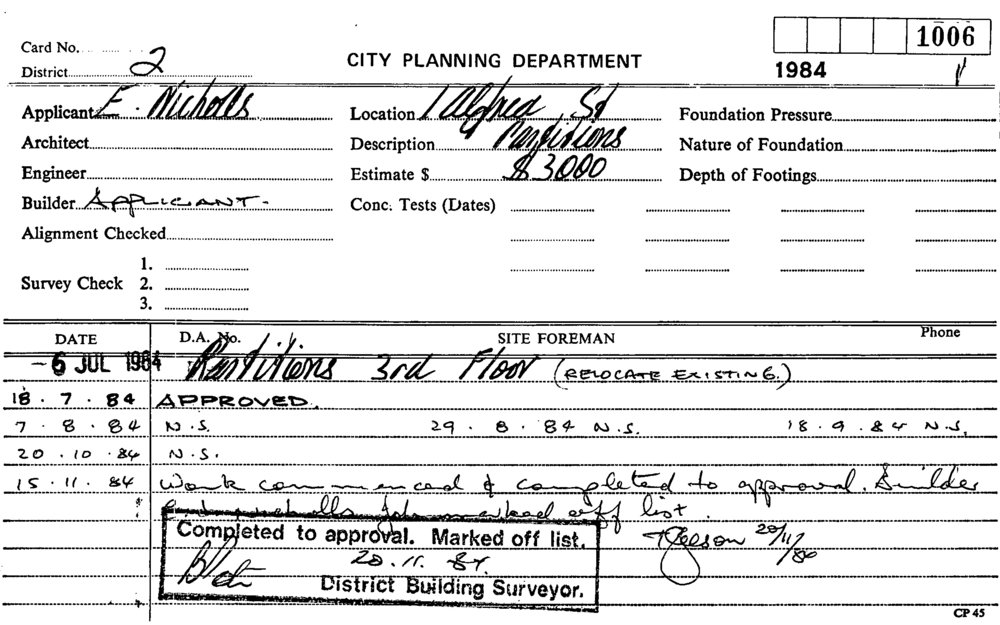 Card No. 1006
District 2 CITY PLANNING DEPARTMENT 1984
Applicant E. Nicholls Location 1 Alfred St Foundation Pressure
Architect Description Partitions Nature of Foundation
Engineer Estimate $ $3000 Depth of Footings
Builder APPLICANT. Conc. Tests (Dates)
Alignment Checked
1.
Survey Check 2.
3.
DATE D.A. No. SITE FOREMAN Phone
- 6 JUL 1984 Partitions 3rd Floor (RELOCATE EXISTING.)
18 . 7 . 84 APPROVED.
7 . 8 . 84 N.S. 29 . 8 . 84 N.S. 18 . 9 . 84 N.S.
20 . 10 . 84 N.S.
15 . 11 . 84 Work commenced & completed to approval. Builder
E. Nicholls job marked off list.
Completed to approval. Marked off list. 20/11/84
20 . 11 . 84.
District Building Surveyor.
CP 45